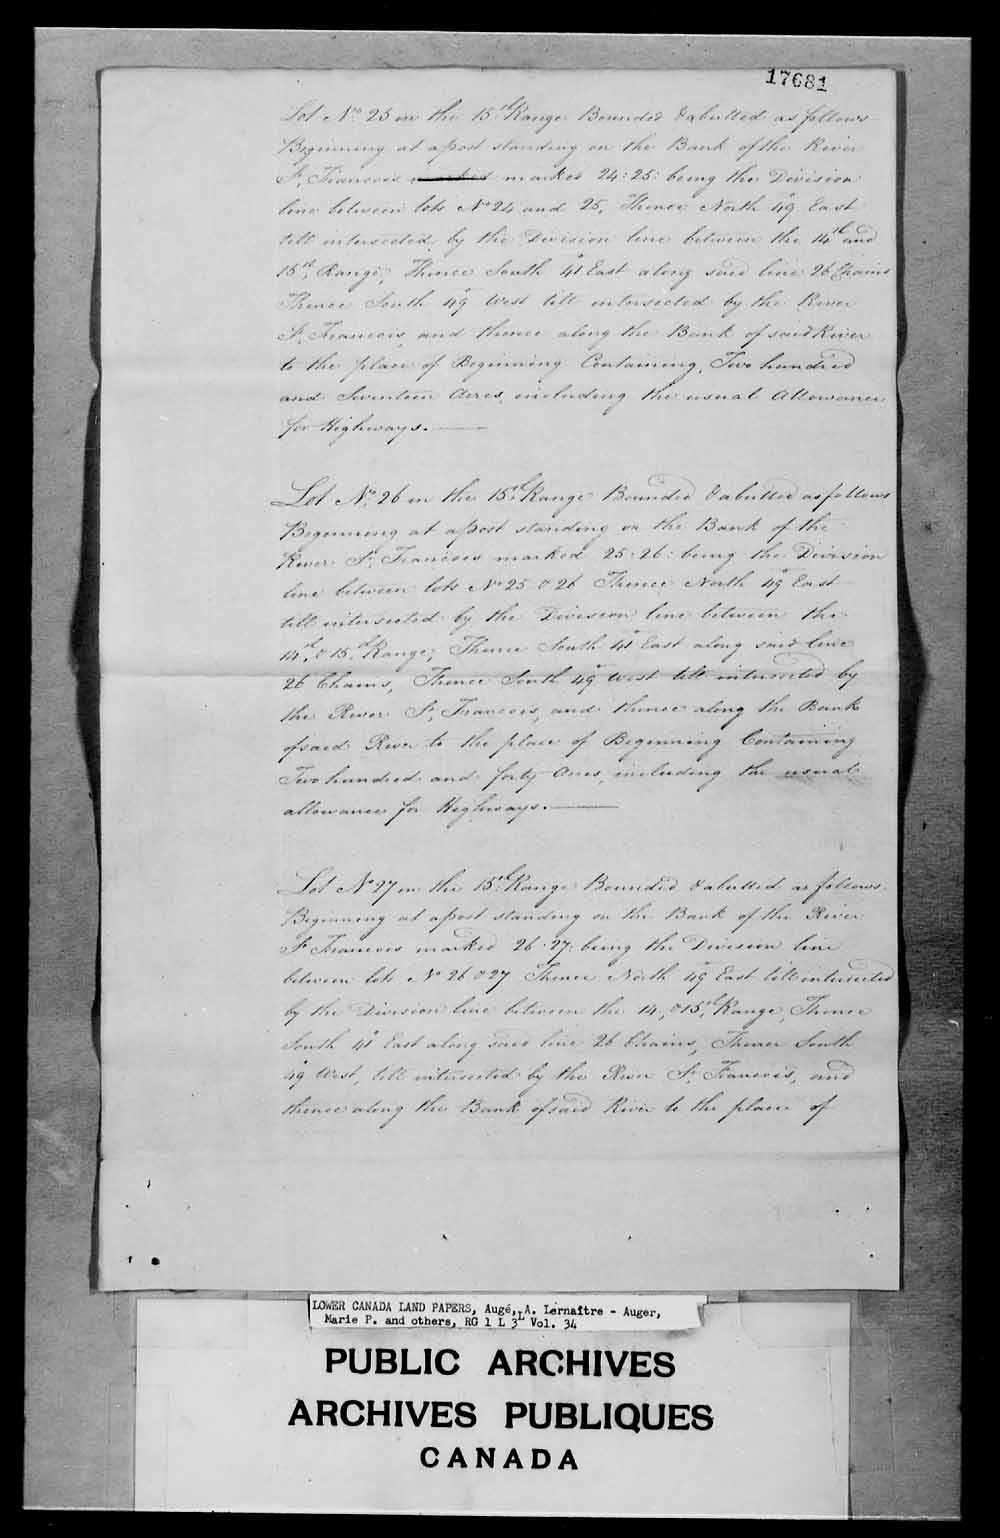 17681
Lot No. 25 in the 15th Range Bounded & abutted as follows
Beginning at a post standing on the Bank of the River
St. Francois marked 24:25: being the Division
line between lots No 24 and 25, Thence North 49° East
till intersected by the Division line between the 14th and
15th Range, Thence South 41° East along said line 26 Chains
Thence South 49° West till intersected by the River
St. Francois and thence along the Bank of said River
to the place of Beginning Containing, Two hundred
and Seventeen Acres, including the usual Allowance
for Highways.
Lot No. 26 in the 15th Range Bounded & abutted as follows
Beginning at a post standing on the Bank of the
River St. Francois marked 25:26: being the Division
line between lots No 25 & 26 Thence North 49° East
till intersected by the Division line between the
14th, & 15th Range, Thence South 41° East along said line
26 Chains, Thence South 49° West till intersected by
the River St. Francois, and thence along the Bank
of said River to the place of Beginning Containing
Two hundred and forty Acres, including the usual
allowance for Highways.
Lot No 27 in the 15th Range Bounded & abutted as follows.
Beginning at a post standing on the Bank of the River
St Francois marked 26:27: being the Division line
between lots No 26 & 27 Thence North 49° East till intersected
by the Division line between the 14, & 15th, Range, Thence
South 41° East along said line 26 Chains, Thence South
49° West, till intersected by the River St. Francois, and
thence along the Bank of said River to the place of
LOWER CANADA LAND PAPERS, Augé, A. Lernaître - Auger,
Marie P. and others, RG 1 L 3L Vol. 34
PUBLIC ARCHIVES
ARCHIVES PUBLIQUES
CANADA